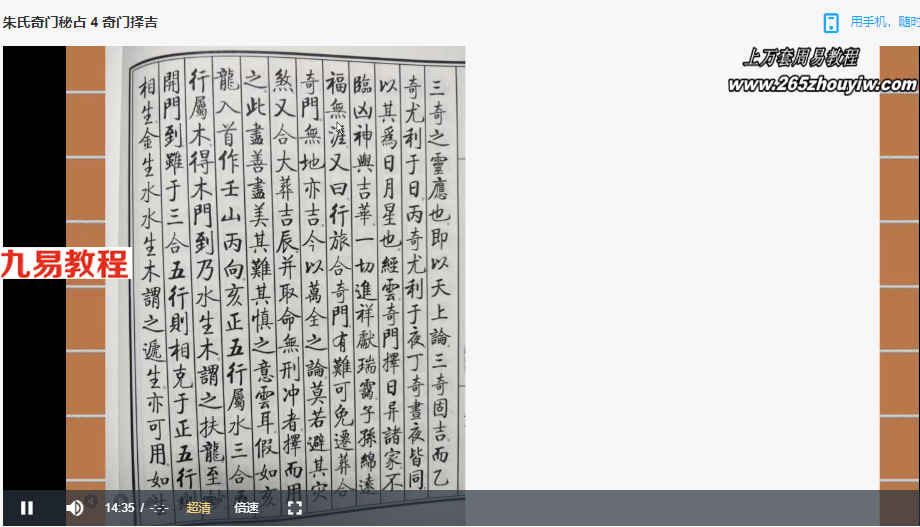 朱氏奇门秘占 4 奇门择吉
用手机，随时
上万套周易教程
www.265zhouyiw.com
三奇之靈應也即以天上論三奇固吉而乙
奇尤利于日丙奇尤利于夜丁奇晝夜皆同
以其爲日月星也經雲奇門擇日异諸家不
臨凶神與吉華一切進祥獻瑞靄子孫綿遠
福無涯又曰行旅合奇門有難可免遷葬合
奇門無地亦吉今以萬全之論莫若避其灾
煞又合大葬吉辰并取命無刑冲者擇而用
之此盡善盡美其難其慎之意雲耳假如亥
龍入首作壬山丙向亥正五行屬水三合五
行屬木得木門到乃水生木謂之扶龍至
開門到雖于三合五行則相克于正五行
相生金生水水生木謂之遞生亦可用如
九易教程
14:35 / -:-
超清
倍速